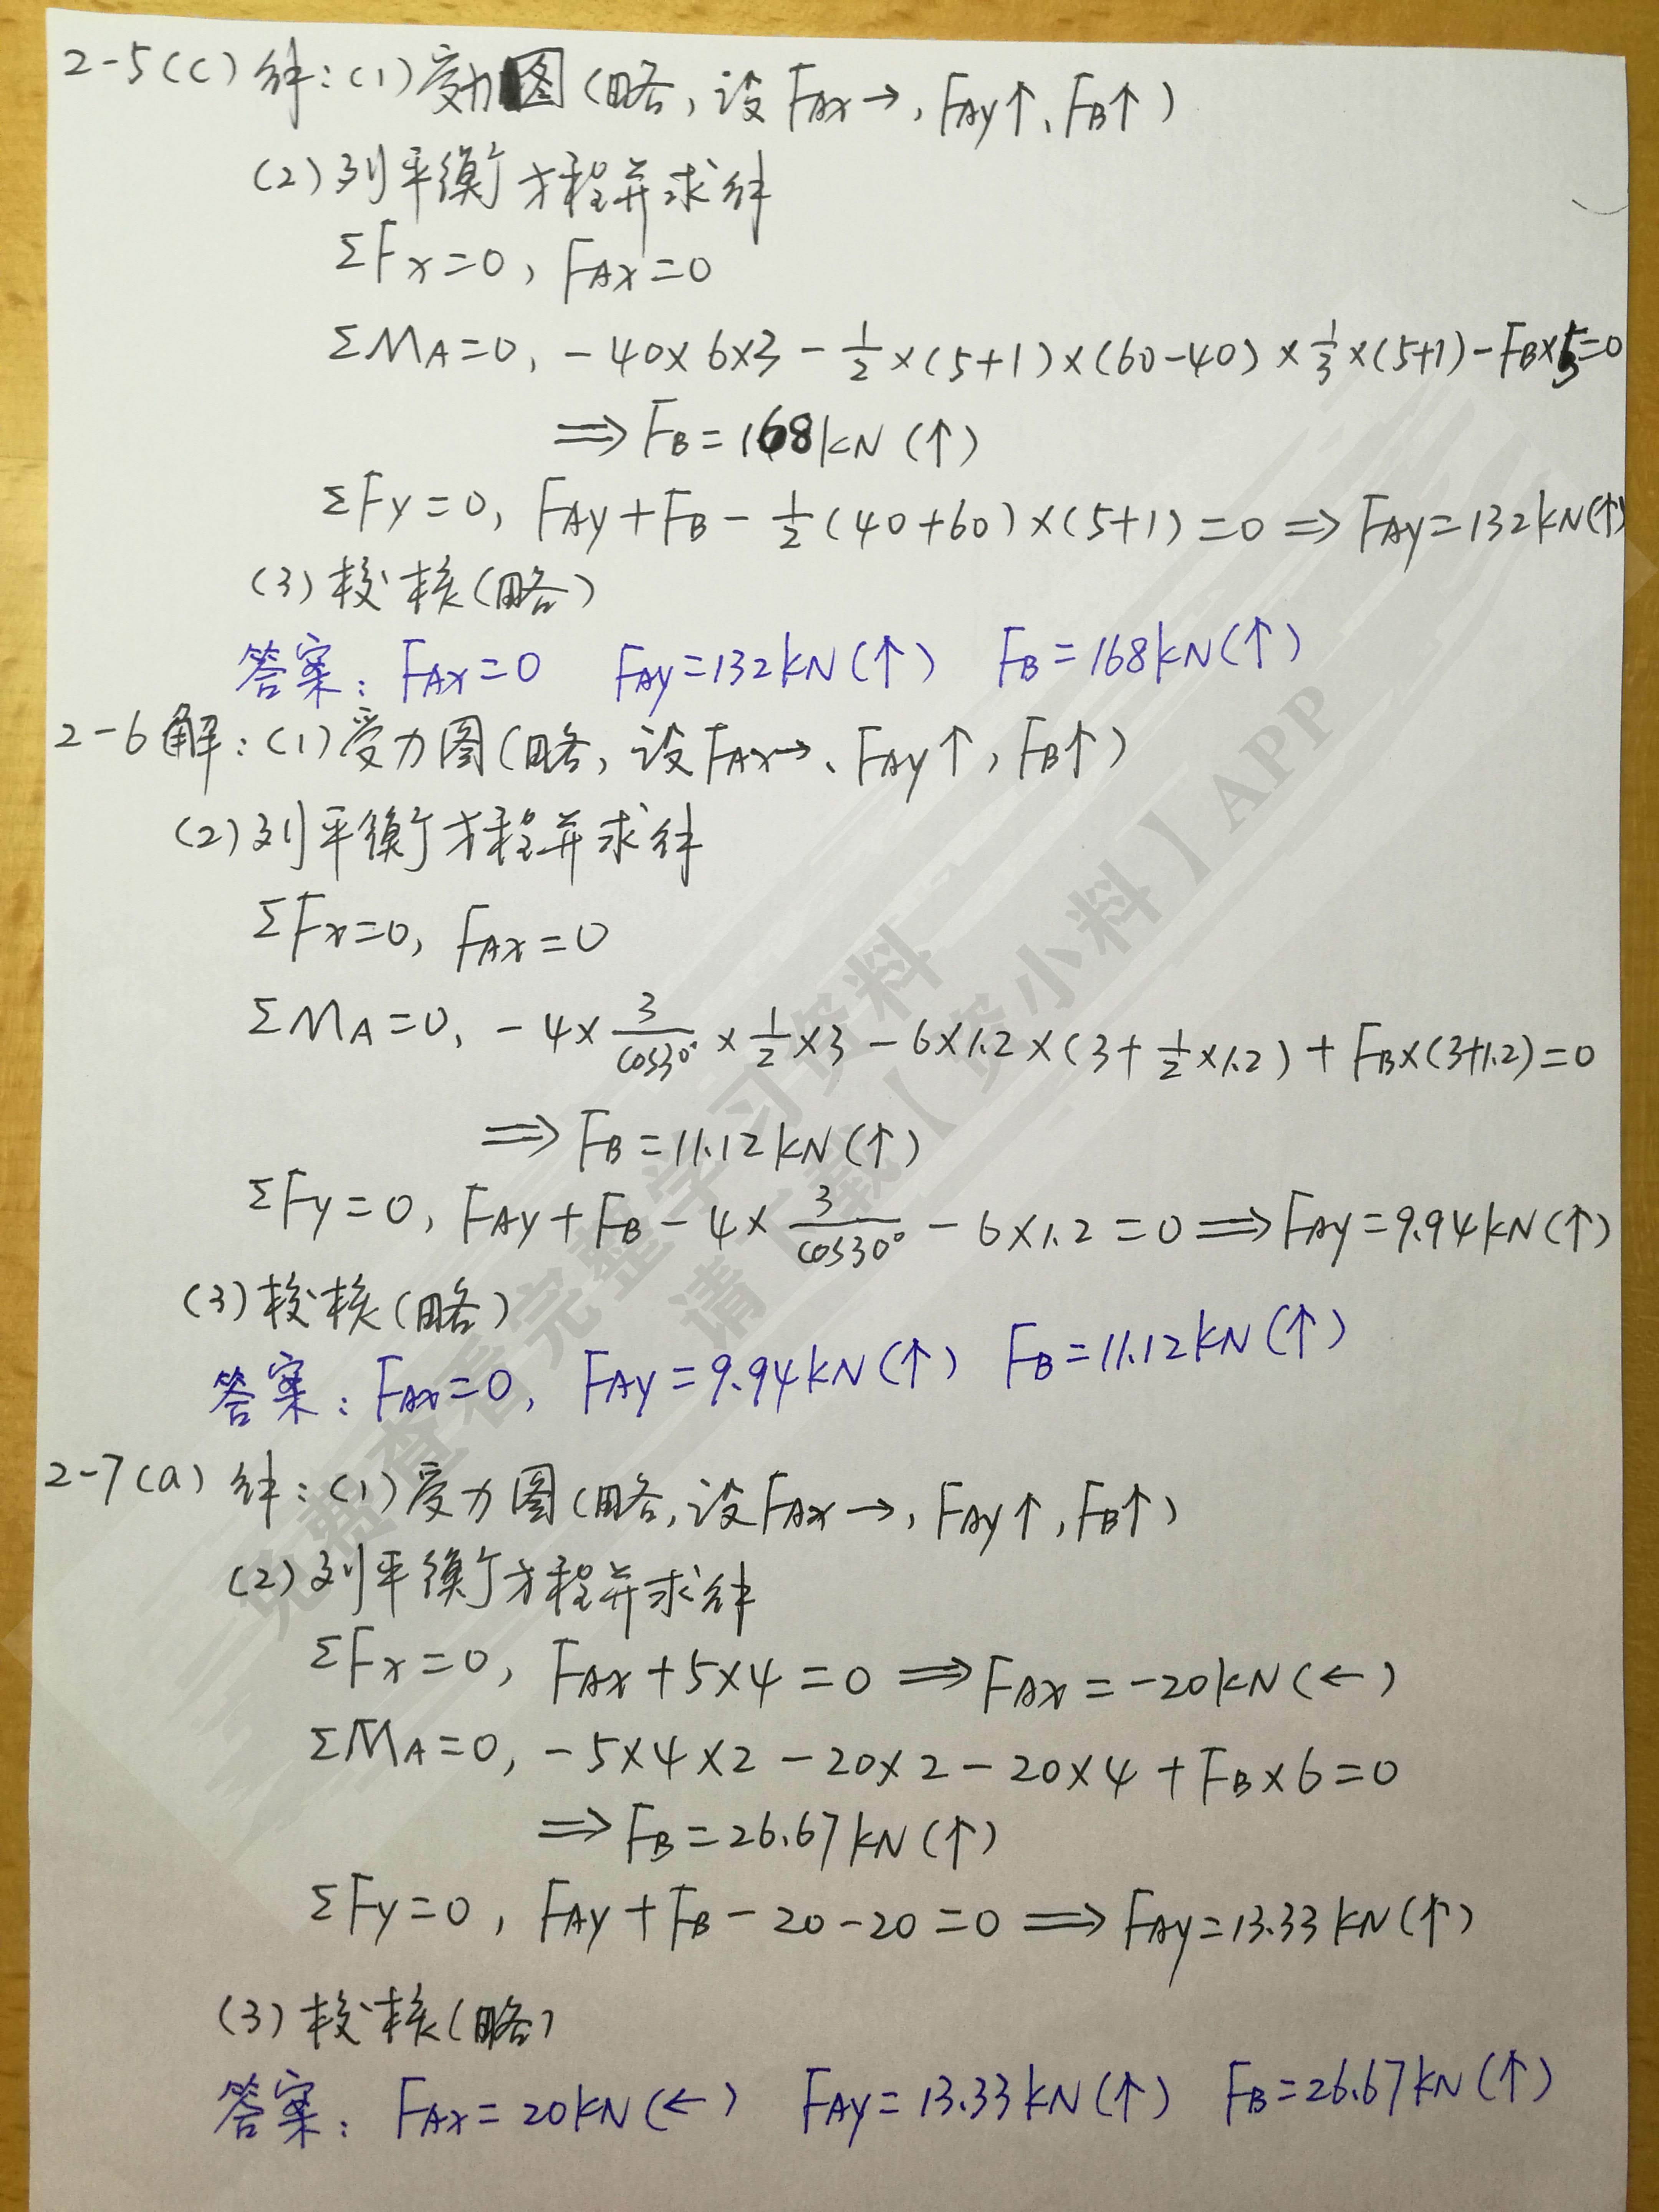 2-5(c) 解:(1)受力图(略,设FAx→,FAy↑、FB↑)
(2)列平衡方程并求解
ΣFx=0, FAx=0
ΣMA=0, -40×6×3-1/2×(5+1)×(60-40)×1/3×(5+1)-FB×5=0
⟹FB=168kN(↑)
ΣFy=0, FAy+FB-1/2(40+60)×(5+1)=0⟹FAy=132kN(↑)
(3)校核(略)
答案: FAx=0 FAy=132kN(↑) FB=168kN(↑)
2-6解:(1)受力图(略,设FAx→、FAy↑,FB↑)
(2)列平衡方程并求解
ΣFx=0, FAx=0
ΣMA=0, -4×3/cos30°×1/2×3-6×1.2×(3+1/2×1.2)+FB×(3+1.2)=0
⟹FB=11.12kN(↑)
ΣFy=0, FAy+FB-4×3/cos30°-6×1.2=0⟹FAy=9.94kN(↑)
(3)校核(略)
答案: FAx=0, FAy=9.94kN(↑) FB=11.12kN(↑)
2-7(a) 解:(1)受力图(略,设FAx→,FAy↑,FB↑)
(2)列平衡方程并求解
ΣFx=0, FAx+5×4=0⟹FAx=-20kN(←)
ΣMA=0, -5×4×2-20×2-20×4+FB×6=0
⟹FB=26.67kN(↑)
ΣFy=0, FAy+FB-20-20=0⟹FAy=13.33kN(↑)
(3)校核(略)
答案: FAx=20kN(←) FAy=13.33kN(↑) FB=26.67kN(↑)
免费查看完整学习资料
请下载【资小料】APP